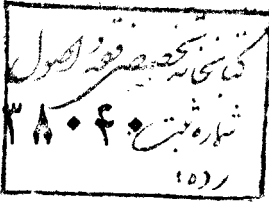 کتابخانه تخصصی فقه و اصول
شماره ثبت ۳۸۰۴۰
رده: